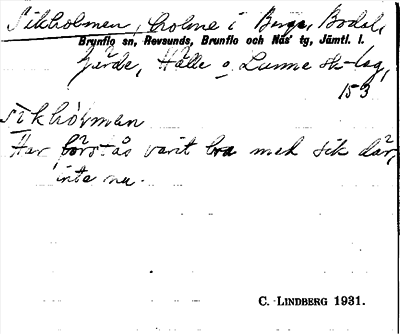 Sikholmen, holme i Berge, Bodal,
Brunflo sn, Revsunds, Brunflo och Näs' tg, Jämtl. l.
Gärde, Hälle o. Lunne sk-lag,
153
sìkhòrmen
Har förstås varit bra med sik där,
inte nu.
C. LINDBERG 1931.